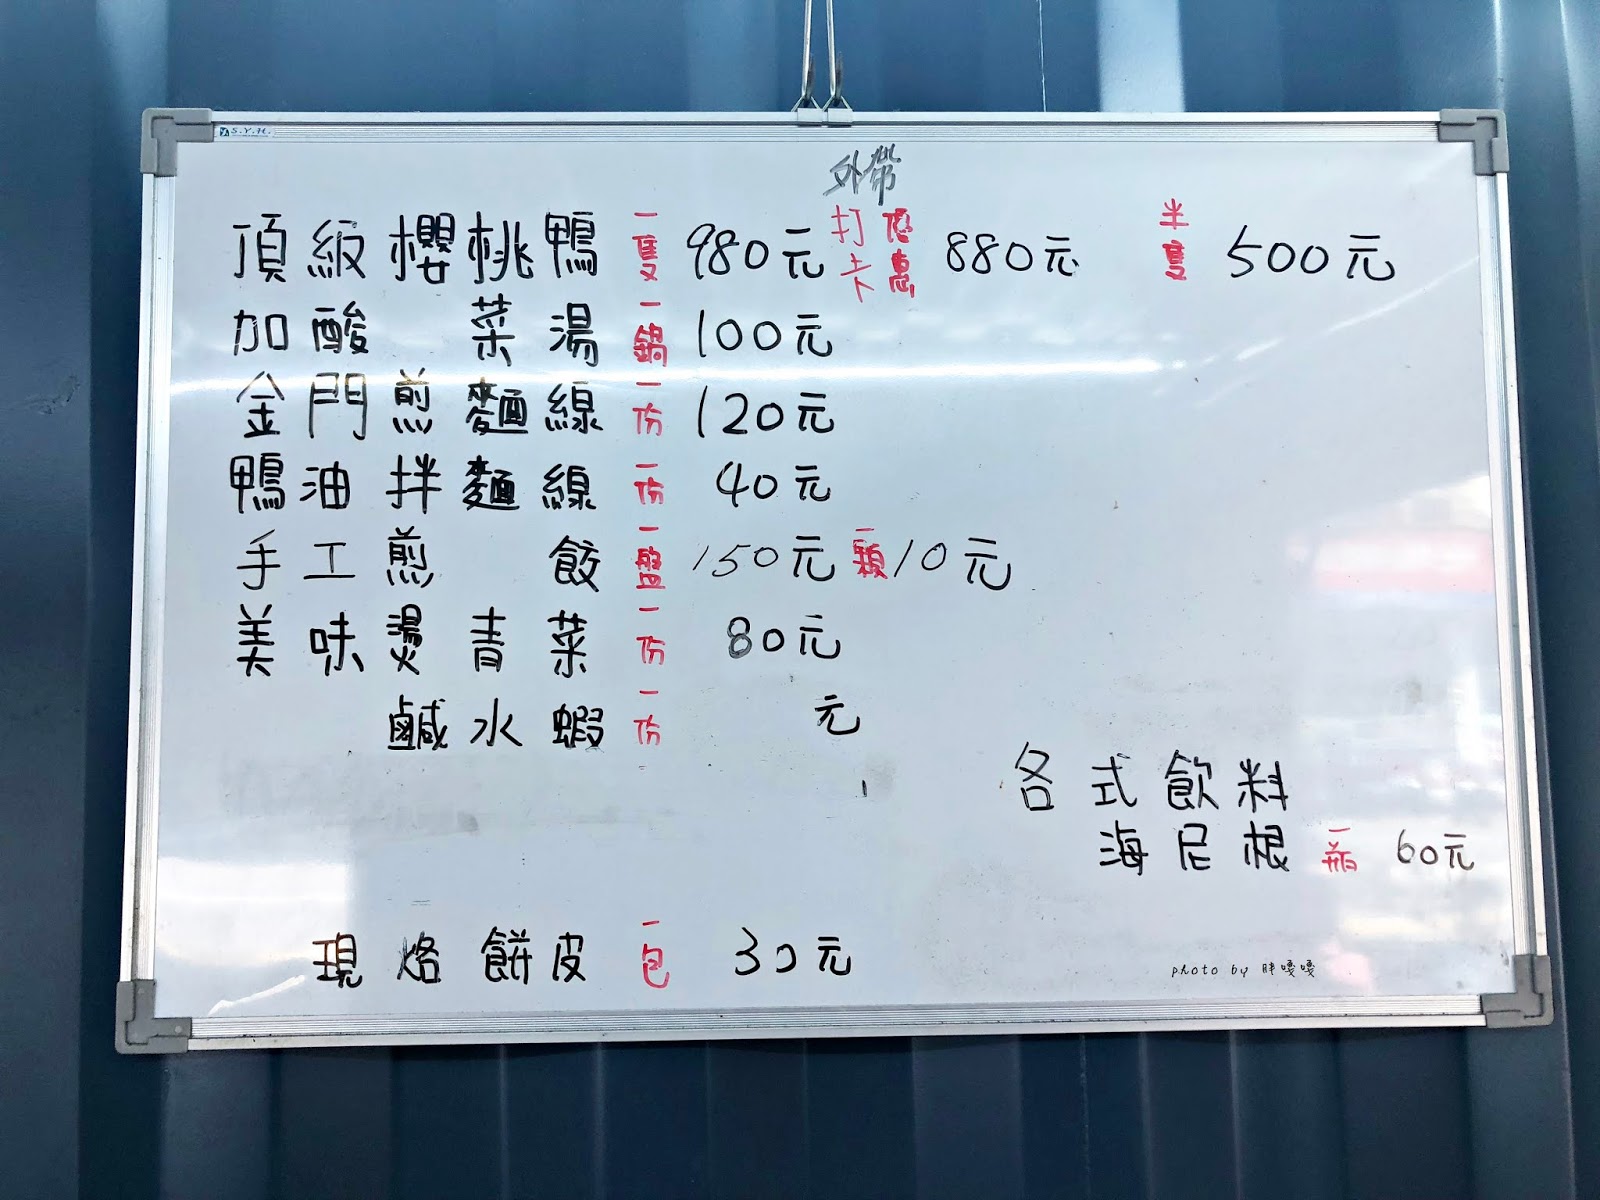 S.Y.H.
外帶
頂級櫻桃鴨 一隻 980元 打卡優惠 880元 半隻 500元
加酸菜湯 一鍋 100元
金門煎麵線 一份 120元
鴨油拌麵線 一份 40元
手工煎餃 一盤 150元 一顆10元
美味燙青菜 一份 80元
鹹水蝦 一份 元
各式飲料
海尼根 一瓶 60元
現烙餅皮 一包 30元
photo by 胖嘎嘎